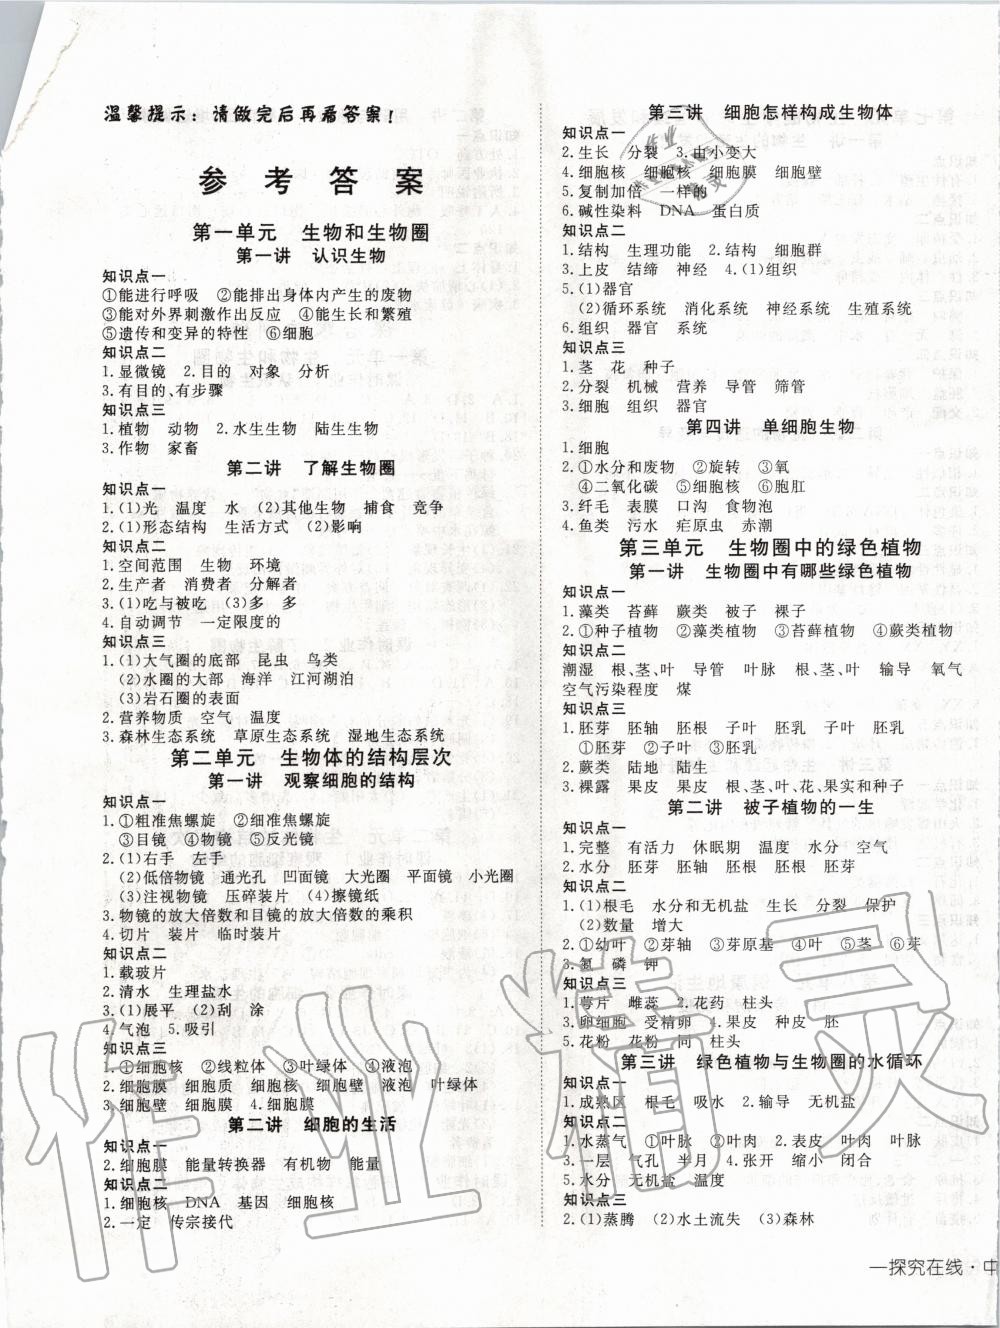 温馨提示：请做完后再看答案！
参考答案
第一单元 生物和生物圈
第一讲 认识生物
知识点一
①能进行呼吸 ②能排出身体内产生的废物
③能对外界刺激作出反应 ④能生长和繁殖
⑤遗传和变异的特性 ⑥细胞
知识点二
1.显微镜 2.目的 对象 分析
3.有目的、有步骤
知识点三
1.植物 动物 2.水生生物 陆生生物
3.作物 家畜
第二讲 了解生物圈
知识点一
1.(1)光 温度 水 (2)其他生物 捕食 竞争
2.(1)形态结构 生活方式 (2)影响
知识点二
1.空间范围 生物 环境
2.生产者 消费者 分解者
3.(1)吃与被吃 (3)多 多
4.自动调节 一定限度的
知识点三
1.(1)大气圈的底部 昆虫 鸟类
(2)水圈的大部 海洋 江河湖泊
(3)岩石圈的表面
2.营养物质 空气 温度
3.森林生态系统 草原生态系统 湿地生态系统
第二单元 生物体的结构层次
第一讲 观察细胞的结构
知识点一
1.①粗准焦螺旋 ②细准焦螺旋
③目镜 ④物镜 ⑤反光镜
2.(1)右手 左手
(2)低倍物镜 通光孔 凹面镜 大光圈 平面镜 小光圈
(3)注视物镜 压碎装片 (4)擦镜纸
3.物镜的放大倍数和目镜的放大倍数的乘积
4.切片 装片 临时装片
知识点二
1.载玻片
2.清水 生理盐水
3.(1)展平 (2)刮 涂
4.气泡 5.吸引
知识点三
1.①细胞核 ②线粒体 ③叶绿体 ④液泡
2.细胞膜 细胞质 细胞核 细胞壁 液泡 叶绿体
3.细胞壁 细胞膜 4.细胞膜
第二讲 细胞的生活
知识点一
2.细胞膜 能量转换器 有机物 能量
知识点二
1.细胞核 DNA 基因 细胞核
2.一定 传宗接代
第三讲 细胞怎样构成生物体
知识点一
2.生长 分裂 3.由小变大
4.细胞核 细胞核 细胞膜 细胞壁
5.复制加倍 一样的
6.碱性染料 DNA 蛋白质
知识点二
1.结构 生理功能 2.结构 细胞群
3.上皮 结缔 神经 4.(1)组织
5.(1)器官
(2)循环系统 消化系统 神经系统 生殖系统
6.组织 器官 系统
知识点三
1.茎 花 种子
2.分裂 机械 营养 导管 筛管
3.细胞 组织 器官
第四讲 单细胞生物
1.细胞
2.①水分和废物 ②旋转 ③氧
④二氧化碳 ⑤细胞核 ⑥胞肛
3.纤毛 表膜 口沟 食物泡
4.鱼类 污水 疟原虫 赤潮
第三单元 生物圈中的绿色植物
第一讲 生物圈中有哪些绿色植物
知识点一
1.藻类 苔藓 蕨类 被子 裸子
2.①种子植物 ②藻类植物 ③苔藓植物 ④蕨类植物
知识点二
潮湿 根、茎、叶 导管 叶脉 根、茎、叶 输导 氧气
空气污染程度 煤
知识点三
1.胚芽 胚轴 胚根 子叶 胚乳 子叶 胚乳
①胚芽 ②子叶 ③胚乳
2.蕨类 陆地 陆生
3.裸露 果皮 果皮 根、茎、叶、花、果实和种子
第二讲 被子植物的一生
知识点一
1.完整 有活力 休眠期 温度 水分 空气
2.水分 胚芽 胚轴 胚根 胚根 胚芽
知识点二
1.(1)根毛 水分和无机盐 生长 分裂 保护
(2)数量 增大
2.①幼叶 ②芽轴 ③芽原基 ④叶 ⑤茎 ⑥芽
3.氮 磷 钾
知识点三
1.萼片 雌蕊 2.花药 柱头
3.卵细胞 受精卵 4.果皮 种皮 胚
5.花粉 花粉 同 柱头
第三讲 绿色植物与生物圈的水循环
知识点一
1.成熟区 根毛 吸水 2.输导 无机盐
知识点二
1.水蒸气 ①叶脉 ②叶肉 2.表皮 叶肉 叶脉
3.一层 气孔 半月 4.张开 缩小 闭合
5.水分 无机盐 温度
知识点三
2.(1)蒸腾 (2)水土流失 (3)森林
一探究在线·中
作业精灵